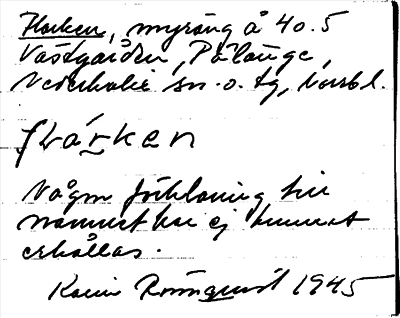 Harken, myräng å 40.5
Västgården, Pålänge,
Nederkalix sn. o. tg, Norrb l.
hárken
Någon förklaring till
namnet har ej kunnat
erhållas.
Karin Rönnquist 1945